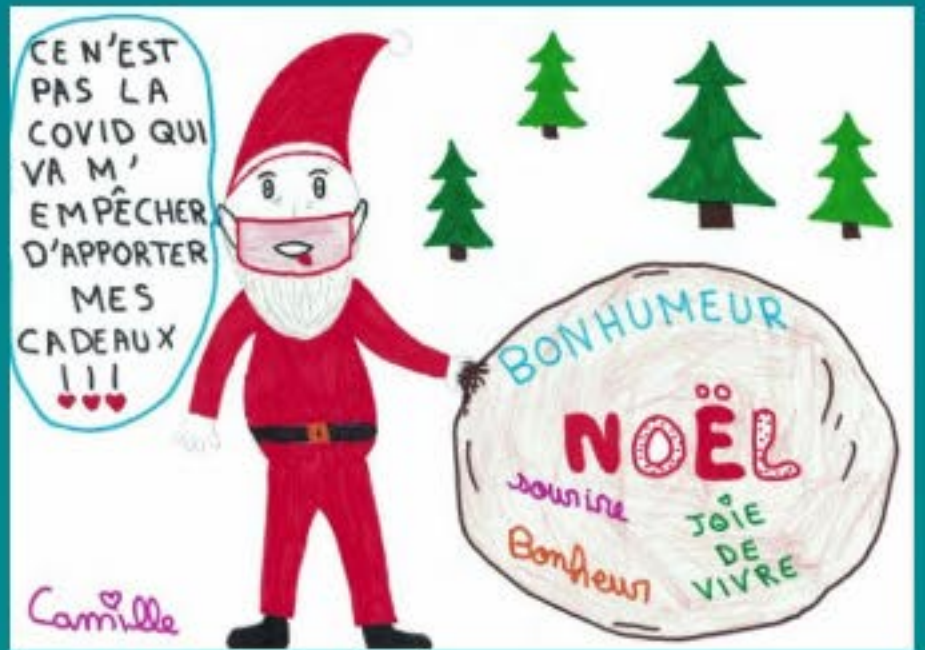 CE N'EST
PAS LA
COVID QUI
VA M'
EMPÊCHER
D'APPORTER
MES
CADEAUX
!!!
BONHUMEUR
NOËL
sourire
Bonheur
JOIE
DE
VIVRE
Camille